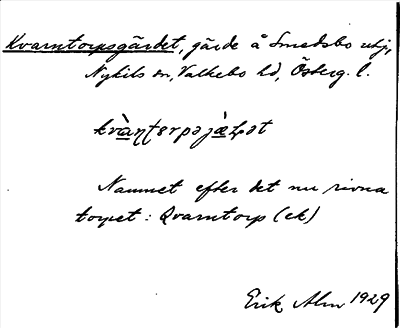 Kvarntorpsgärdet, gärde å Smedsbo utj,
Nykils sn, Valkebo hd, Österg. l.
Namnet efter det nu rivna
torpet: Qvarntorp (ek)
Erik Alm 1929